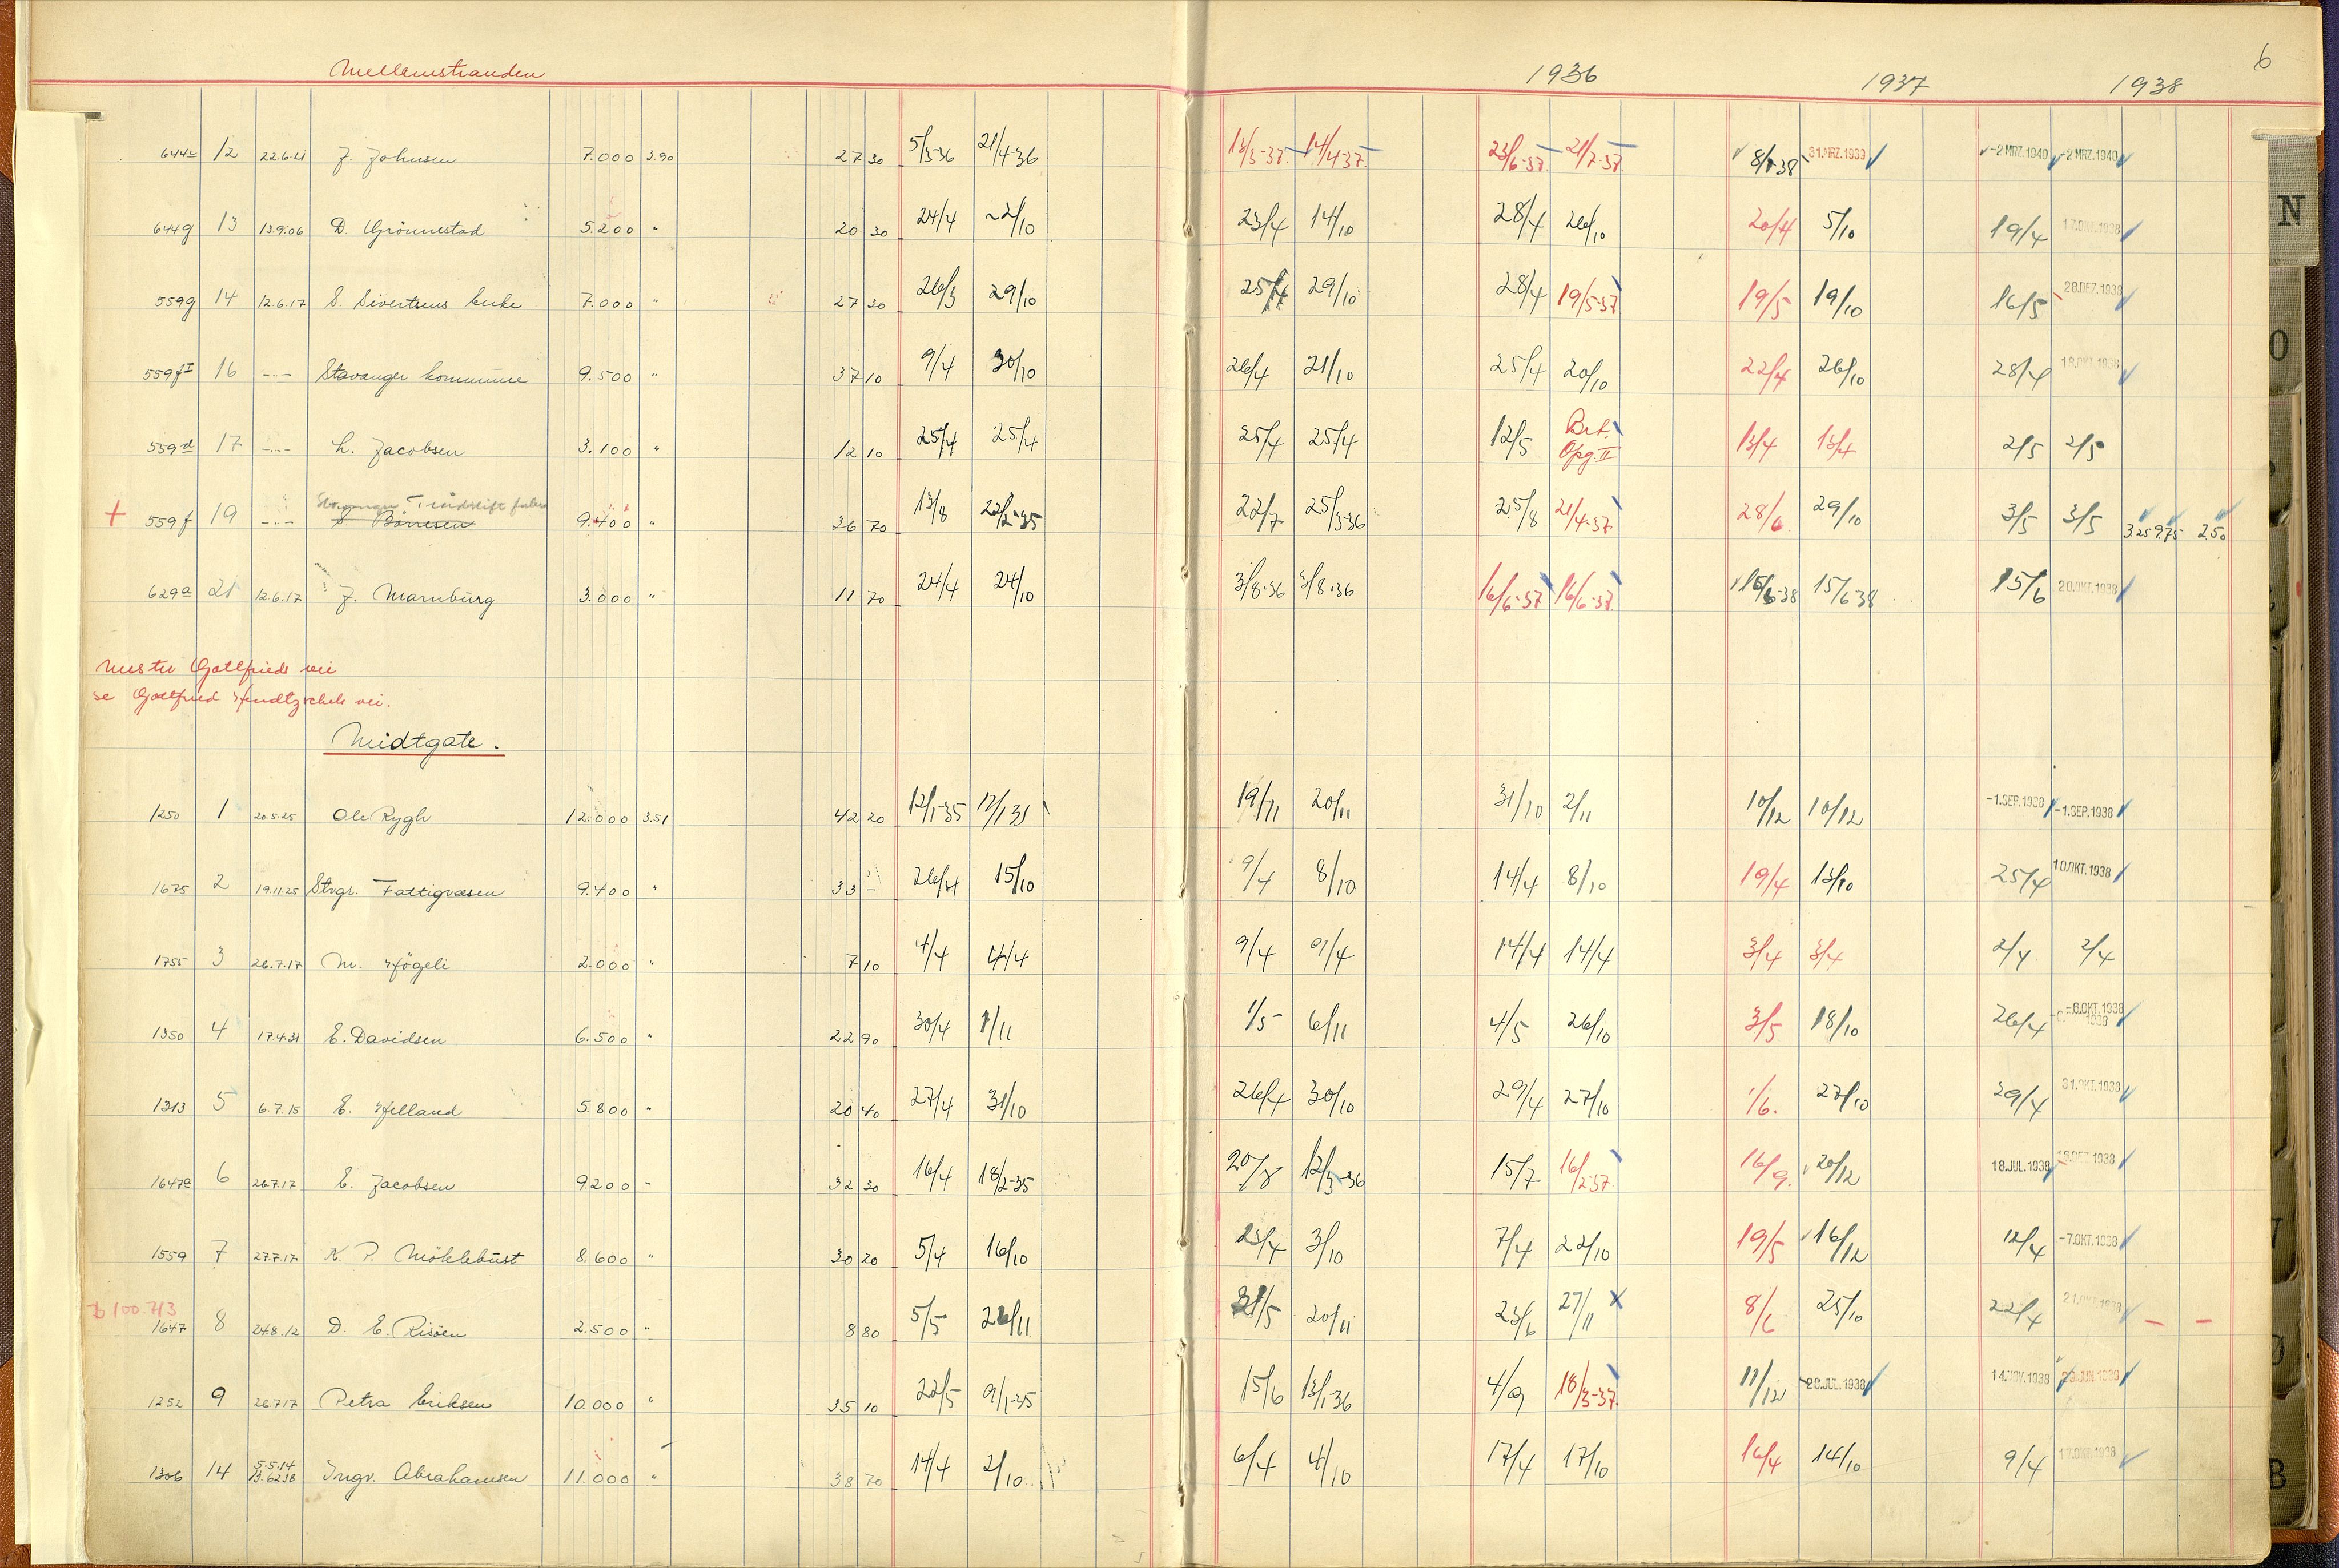 Mellemstranden 1936 1937 1938 6
644c 12 22.6.21 J. Johnsen 7.000 3.90 27 30 5/3-36 21/4-36 13/3-37 14/4-37 23/6-37 21/7-37 8/1-38 31.MRZ.1939 -2 MRZ.1940 -2 MRZ.1940
644g 13 13.9.06 D. Grönnestad 5.200 " 20 30 24/4 22/10 23/4 14/10 28/4 26/10 20/4 5/10 19/4 17.OKT.1938
559g 14 12.6.17 S. Sivertsens enke 7.000 " 27 30 26/3 29/10 25/4 29/10 28/4 19/5-37 19/5 19/10 16/5 28.DEZ.1938
559f I 16 -.- Stavanger kommune 9.500 " 37 10 9/4 30/10 26/4 21/10 25/4 20/10 22/4 26/10 28/4 18.OKT.1938
559d 17 -.- L. Jacobsen 3.100 " 12 10 25/4 25/4 25/4 25/4 12/5 Bet. Opg. II 13/4 13/4 2/5 2/5
+ 559f 19 -.- Börresen 9.400 " 36 70 13/8 22/2-35 22/7 25/3-36 25/8 21/4-37 28/6 29/10 3/5 3/5 3.25 9.75 2.50
629a 21 12.6.17 J. Marnburg 3.000 " 11 70 24/4 24/10 3/8-36 3/8-36 16/6-37 16/6-37 15/6-38 15/6-38 15/6 20.OKT.1938
Mester Gottfrieds vei
se Gottfried vei.
Midtgate.
1250 1 20.5.25 Ole Rygh 12.000 3.51 42 20 12/1-35 12/1 35 19/11 20/11 31/10 2/11 10/12 10/12 -1.SEP.1938 -1.SEP.1938
1675 2 19.11.25 Stvgr. Fattigvæsen 9.400 " 33 - 26/4 15/10 9/4 8/10 14/4 8/10 19/4 13/10 25/4 10.OKT.1938
1755 3 26.7.17 M. Högeli 2.000 " 7 10 4/4 4/4 9/4 9/4 14/4 14/4 3/4 3/4 2/4 2/4
1350 4 17.4.31 E. Davidsen 6.500 " 22 90 30/4 1/11 1/5 6/11 4/5 26/10 3/5 18/10 26/4 -6.OKT.1938
1313 5 6.7.15 E. Helland 5.800 " 20 40 27/4 31/10 26/4 30/10 29/4 27/10 1/6. 27/10 29/4 31.OKT.1938
1647a 6 26.7.17 E. Jacobsen 9.200 " 32 30 16/4 18/2-35 20/8 12/3-36 15/7 16/2-37 16/9. 20/12 18.JUL.1938
1559 7 27.7.17 K. P. Möklebust 8.600 " 30 20 5/4 16/10 25/4 3/10 7/4 22/10 19/5 16/12 12/4 -7.OKT.1938
b 100.713
1647 8 24.8.12 D. E. Risöen 2.500 " 8 80 5/5 26/11 31/5 20/11 23/6 27/11 x 8/6 25/10 22/4 21.OKT.1938 - -
1252 9 26.7.17 Petra Eriksen 10.000 " 35 10 22/5 9/1-35 15/6 13/1-36 4/9 18/3-37 11/12 28.JUL.1938 14.NOV.1938 23.JUN.1939
1306 14 5.5.14 13.6.238 Ingv. Abrahamsen 11.000 " 38 70 14/4 2/10 6/4 4/10 17/4 17/10 16/4 14/10 9/4 17.OKT.1938
N
O
Ø
B